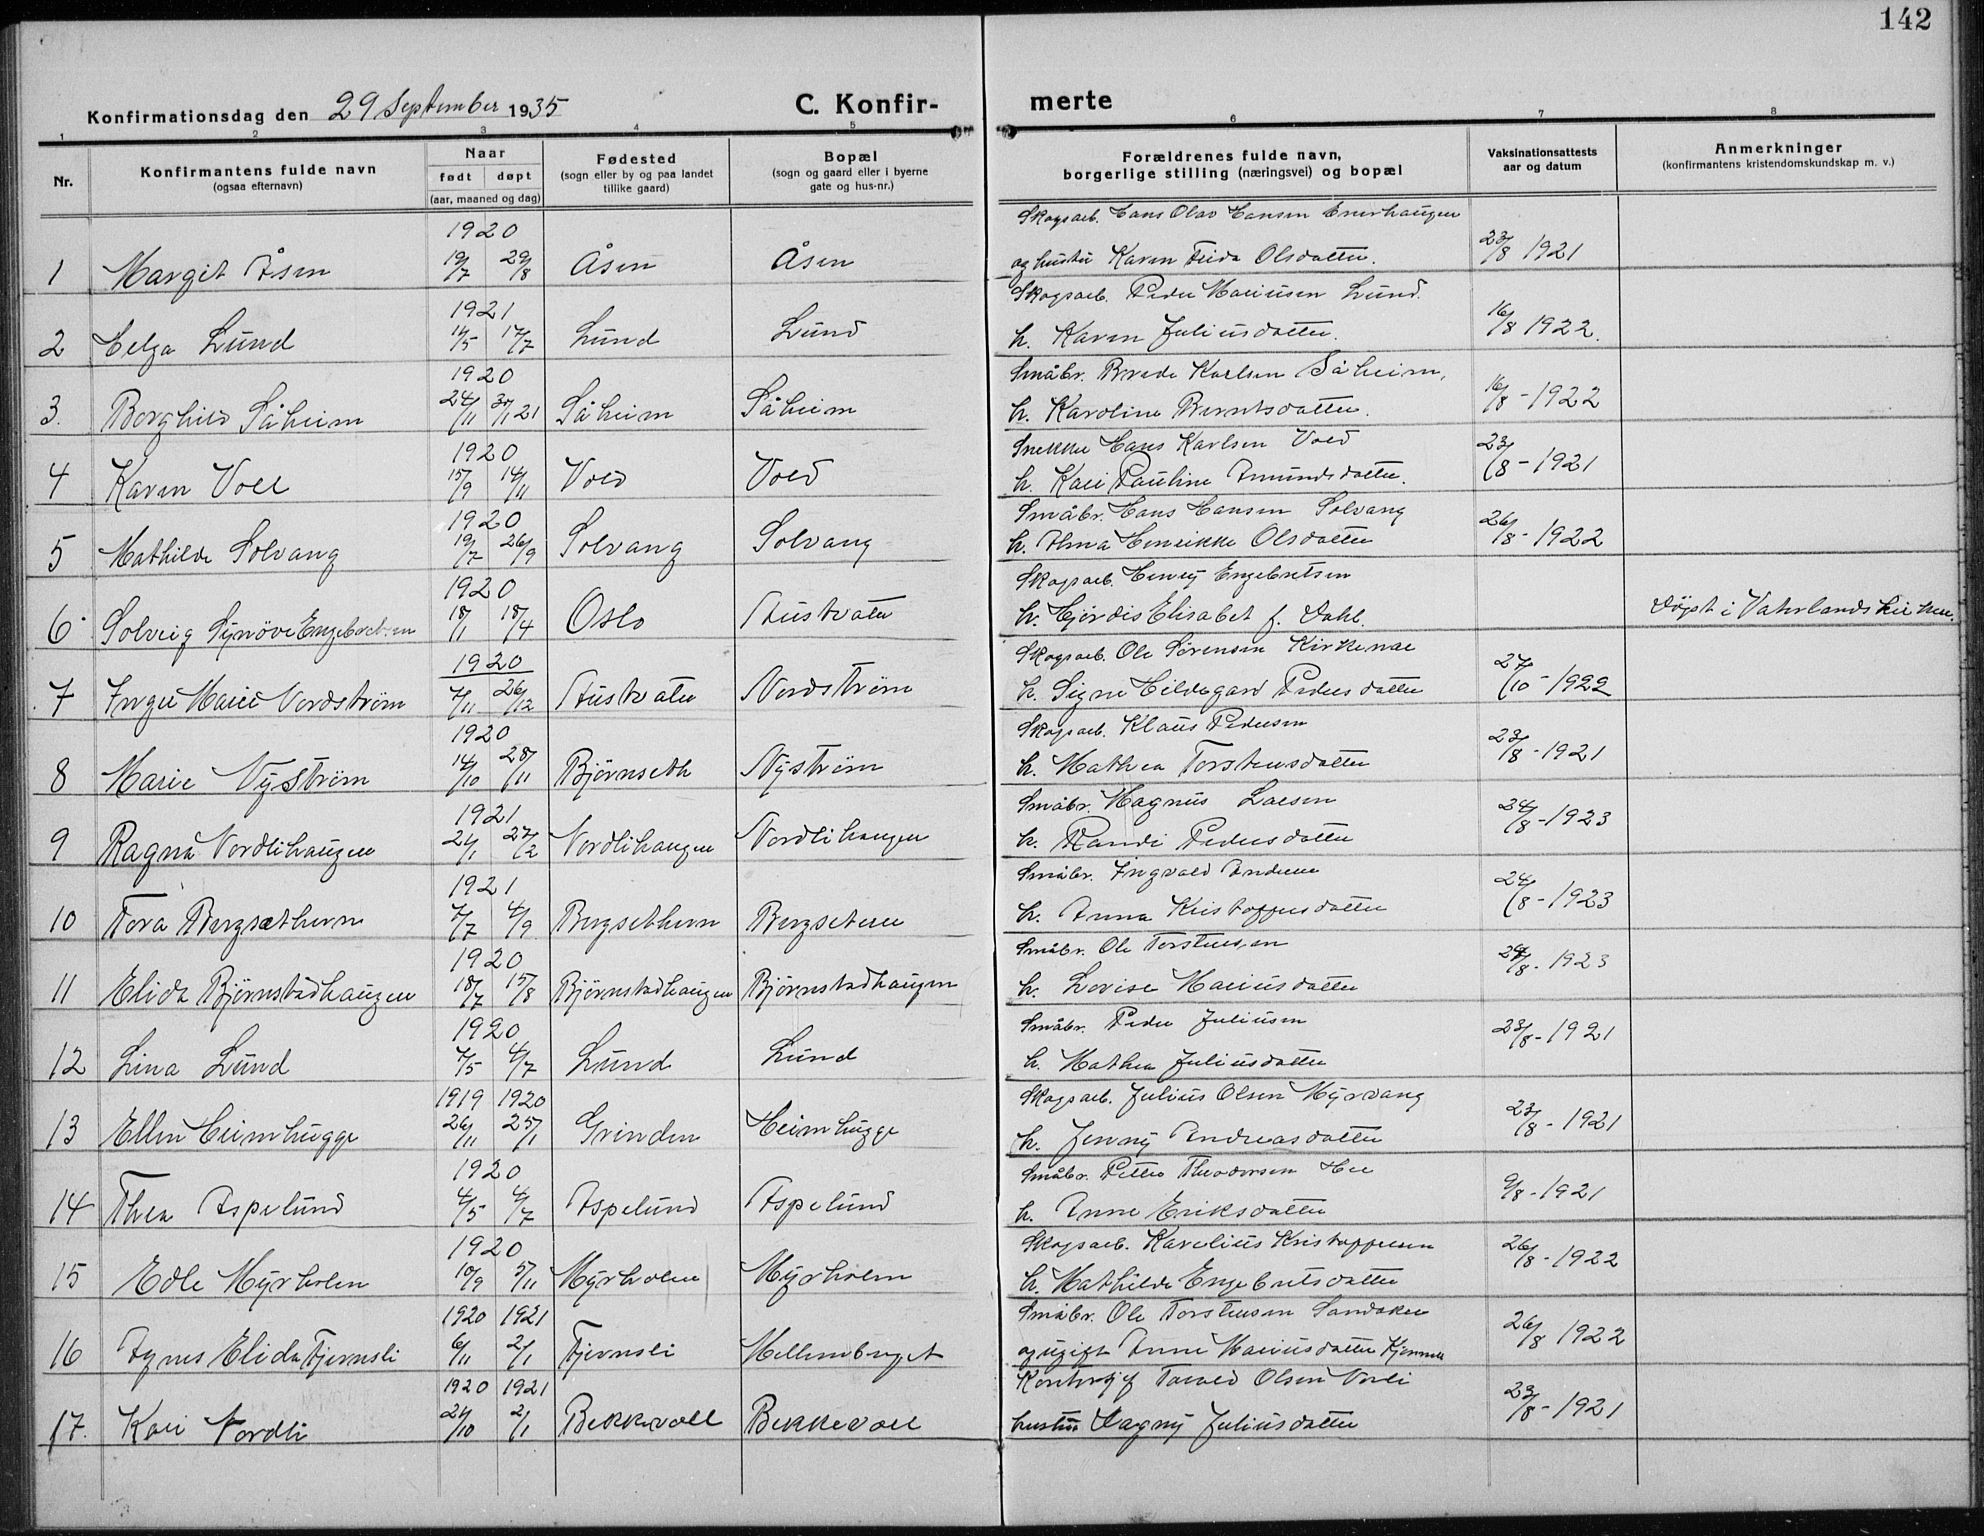 142
Konfirmationsdag den 29 September 1935 C. Konfir- merte
1 2 3 4 5 6 7 8
Nr. Konfirmantens fulde navn (ogsaa efternavn) Naar født døpt (aar, maaned og dag) Fødested (sogn eller by og paa landet tillike gaard) Bopæl (sogn og gaard eller i byerne gate og hus-nr.) Forældrenes fulde navn, borgerlige stilling (næringsvei) og bopæl Vaksinationsattests aar og datum Anmerkninger (konfirmantens kristendomskundskap m. v.)
1920 Skogsarb. Hans Olav Hansen Enerhaugen
1 Margit Åsen 19/7 29/8 Åsen Åsen og hustru Karen Frida Olsdatter. 23/8 1921
1921 Skogsarb. Peder Mariusen Lund.
2 Helga Lund 14/5 17/7 Lund Lund h. Karen Juliusdatter. 16/8 1922.
1920 Småbr. Brede Karlsen Såheim,
3. Borghild Såheim 24/11 30/1 21 Såheim Såheim h. Karoline Berntsdatter. 16/8 - 1922
1920 Snekker Hans Karlsen Vold
4 Karen Voll 15/9 14/11 Vold Vold h. Kari Pauline Amundsdatter. 23/8 - 1921
1920 Småbr. Hans Hansen Solvang
5 Mathilde Solvang 19/7 26/9 Solvang Solvang h. Alma Henrikke Olsdatter 26/8 - 1922
1920 Skogsarb. Henry Engebretsen
6. Solveig Synøve Engebretsen 18/1 18/4 Oslo Austvatn h. Hjørdis Elisabet f. Dahl. Døpt i Vaterlands kirken.
1920 Skogsarb. Ole Sørensen Kirkenær
7 Inger Marie Nordstrøm 7/11 26/12 Austvatn Nordstrøm h. Signe Hildegard Pedersdatter 27/10 - 1922
1920 Skogsarb. Klaus Pedersen
8 Marie Nystrøm 14/10 28/11 Bjørnseth Nystrøm h. Mathea Torstensdatter 23/8 - 1921
1921 Småbr. Magnus Larsen
9 Ragna Nordlihaugen 24/1 27/2 Nordlihaugen Nordlihaugen h. Randi Pedersdatter 24/8 - 1923
1921 Småbr. Ingvald Andersen
10 Tora Bergsæthern 7/7 4/9 Bergsethern Bergsetern h. Anna Kristoffersdatter 24/8 - 1923
1920 Småbr. Ole Torstensen
11 Elida Bjørnstadhaugen 18/7 15/8 Bjørnstadhaugen Bjørnstadhaugen h. Lovise Mariusdatter 24/8 - 1923
1920 Småbr. Peder Juliusen
12 Lina Lund 7/5 4/7 Lund Lund h. Mathea Juliusdatter 23/8 - 1921
1919 1920 Skogsarb. Julius Olsen Myrvang
13 Ellen Heimhugge 26/11 25/1 Grinden Heimhugge h. Jenny Andreasdatter 23/8 - 1921
1920 Småbr. Petter Theodorsen
14 Thea Aspelund 4/5 4/7 Aspelund Aspelund h. Anne Eriksdatter 9/8 - 1921
1920 Skogsarb. Karelius Kristoffersen
15 Edle Myrholen 10/9 5/11 Myrholen Myrholen h. Mathilde Engebretsdatter 26/8 - 1922
1920 1921 Småbr. Ole Torstensen Sandaker
16 Agnes Elida Tjernsli 6/11 2/1 Tjernsli Mellemberget og ugift Anne Mariusdatter 26/8 1922
1920 1921 Torvald Olsen Norli
17. Kari Nordli 24/10 2/1 Bekkevoll Bekkevoll hustru Dagny Juliusdatter 23/8 - 1921